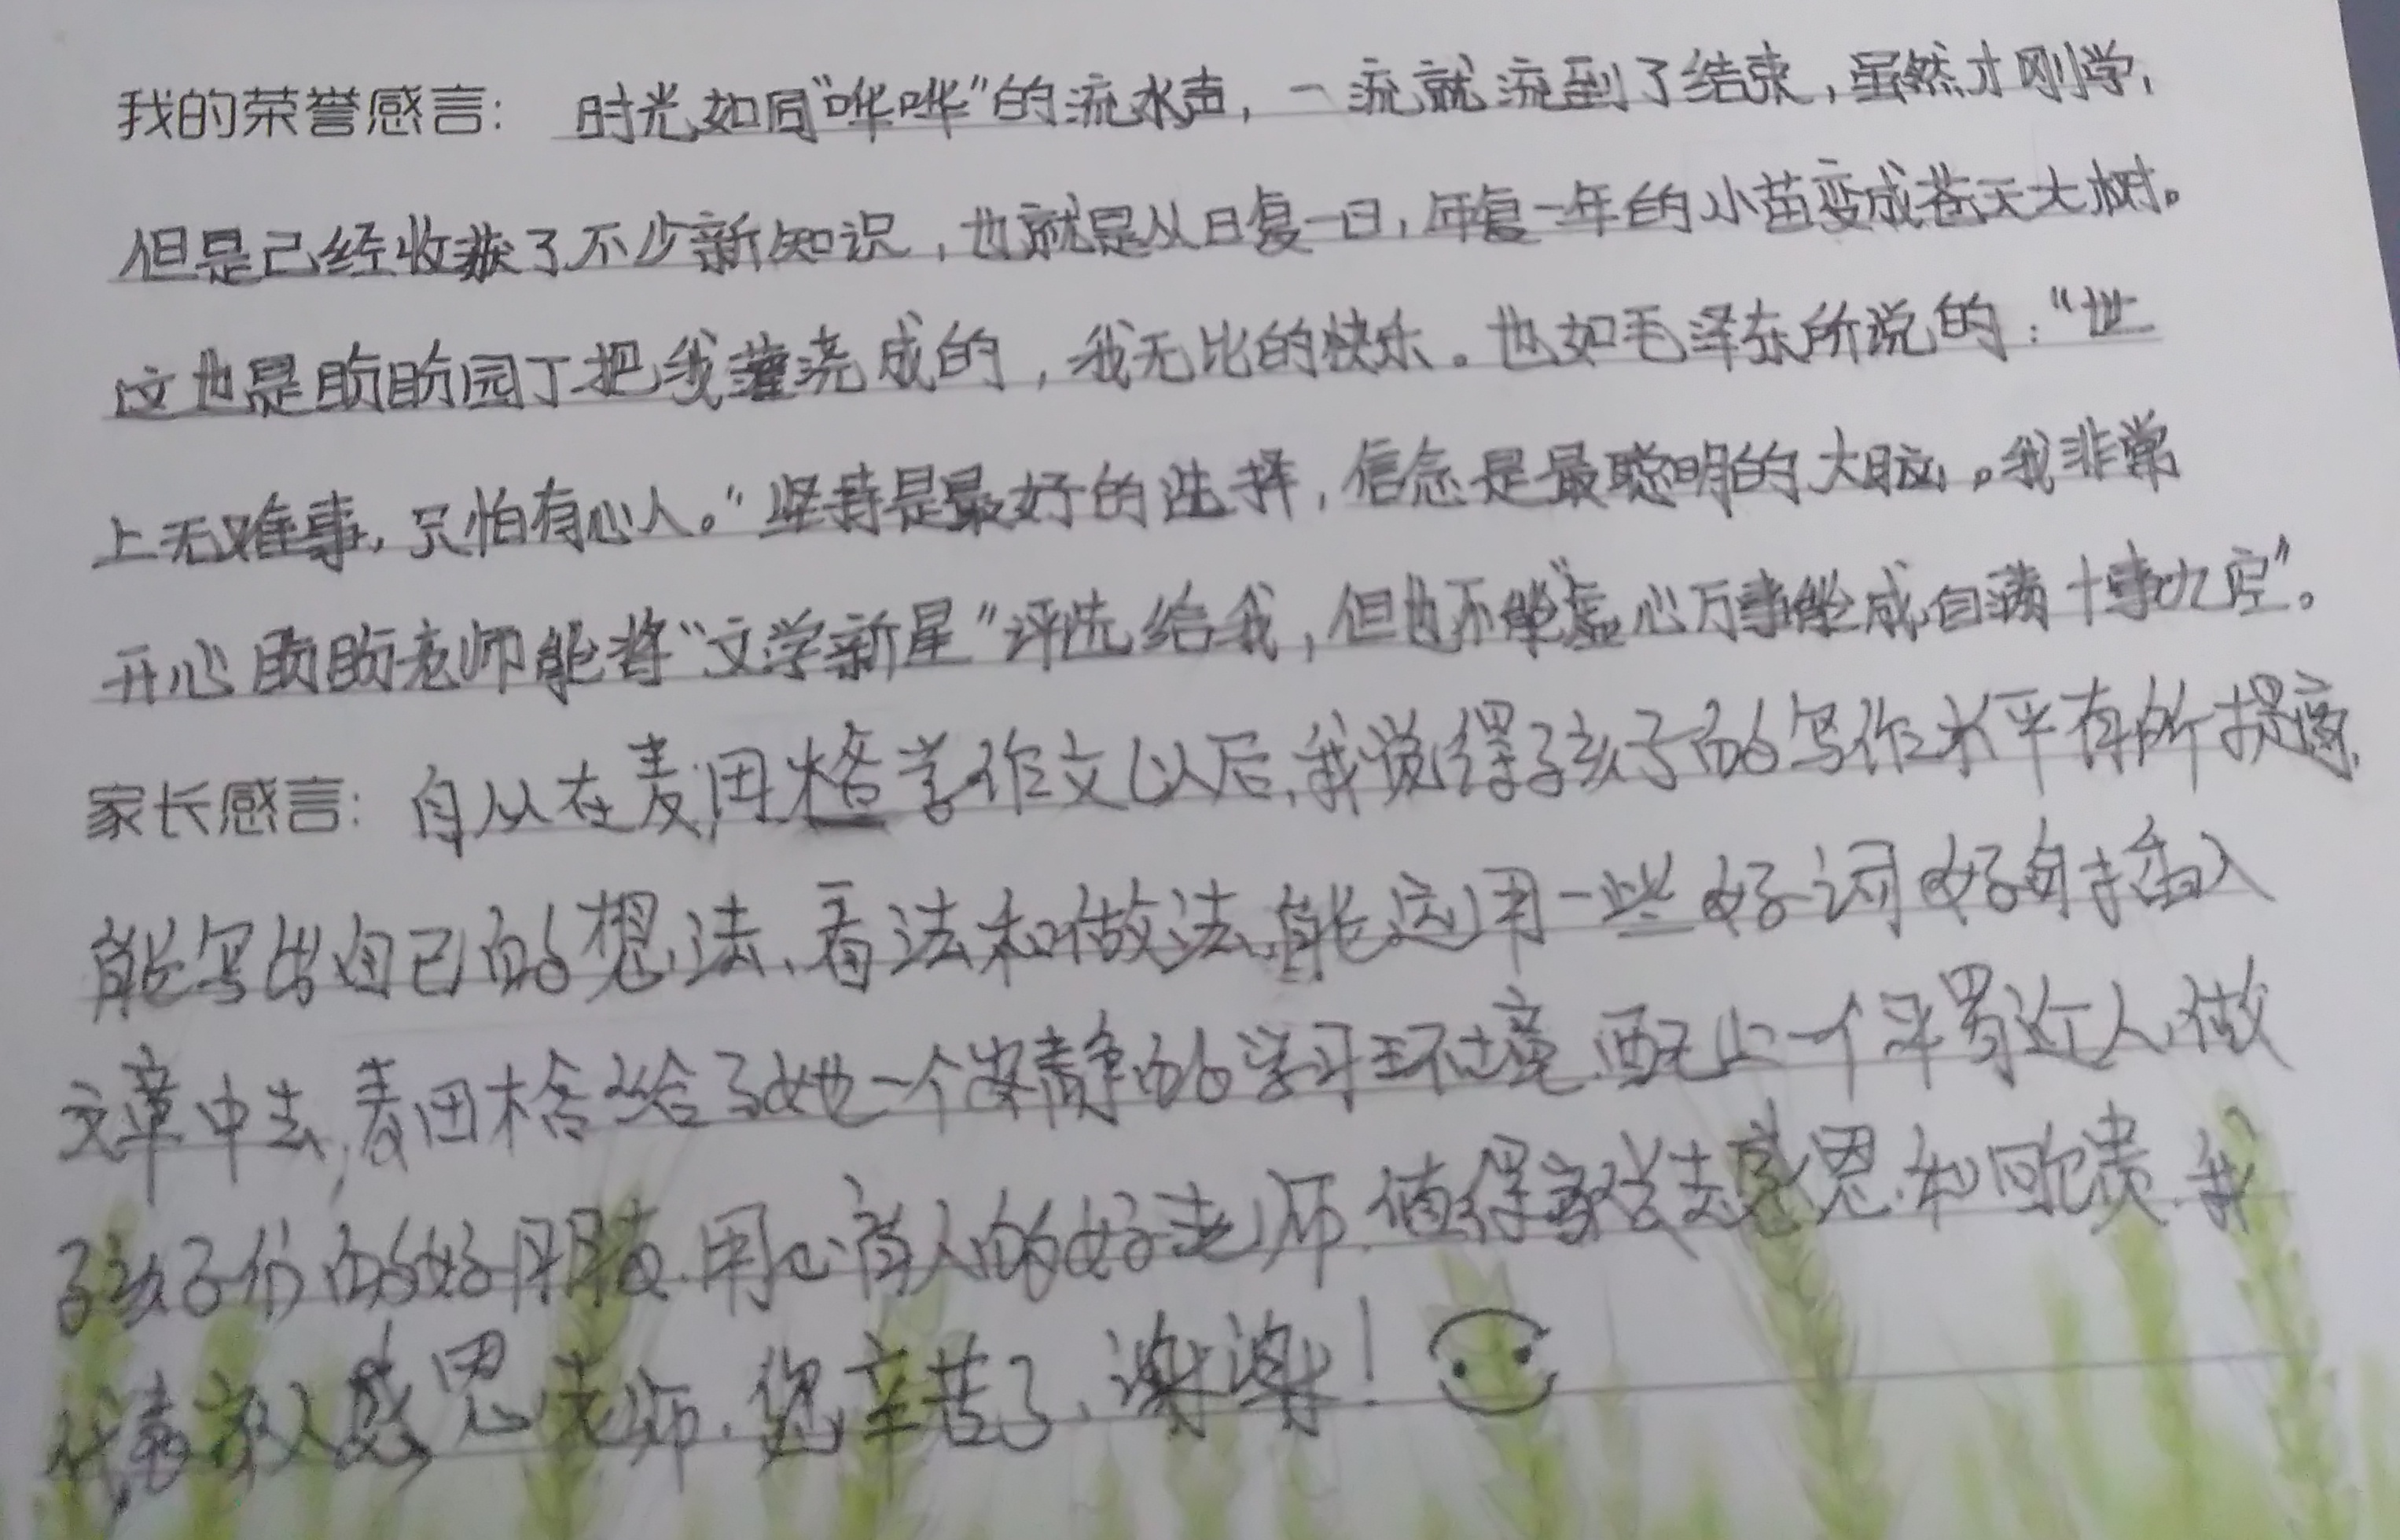 我的荣誉感言：时光如同“哗哗”的流水声，一流就流到了结束，虽然才刚学，
但是已经收获了不少新知识，也就是从日复一日，年复一年的小苗变成苍天大树。
这也是盼盼园丁把我灌浇成的，我无比的快乐。也如毛泽东所说的：“世
上无难事，只怕有心人。”坚持是最好的选择，信念是最聪明的大脑。我非常
开心盼盼老师能将“文学新星”评选给我，但也不能“虚心万事能成，自满十事九空”。
家长感言：自从在麦田格学作文以后，我觉得孩子的写作水平有所提高，
能写出自己的想法、看法和做法，能运用一些好词好句插入
文章中去，麦田格给了她一个安静的学习环境，配上一个平易近人，做
孩子们的好朋友，用心育人的好老师，值得家长去感恩和回馈，我
代表家人感恩老师，您辛苦了，谢谢！